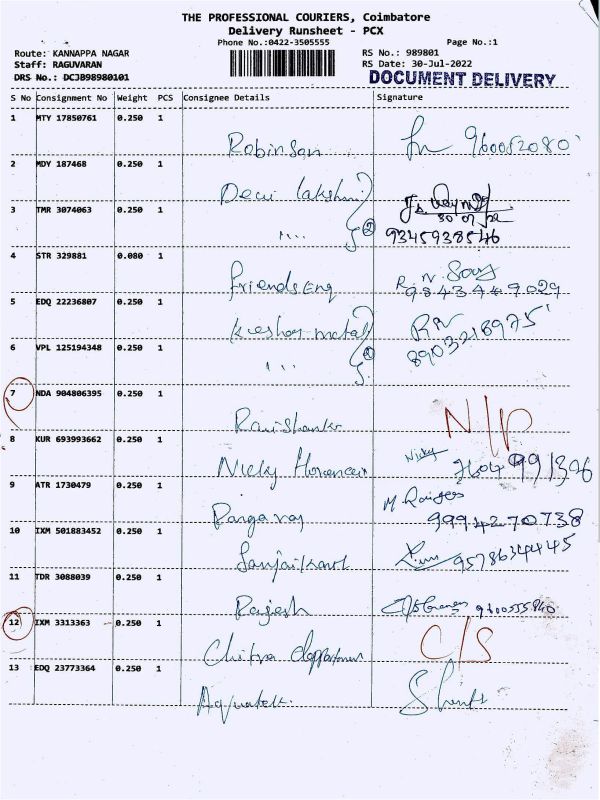 THE PROFESSIONAL COURIERS, Coimbatore
Delivery Runsheet - PCX
Phone No.:0422-3505555 Page No.:1
Route: KANNAPPA NAGAR RS No.: 989801
Staff: RAGUVARAN RS Date: 30-Jul-2022
DRS No.: DCJB98980101 DOCUMENT DELIVERY
S No Consignment No Weight PCS Consignee Details Signature
1 MTY 17850761 0.250 1
Robinson
2 MDY 187468 0.250 1
Devi lakshmi
3 TMR 3074063 0.250 1
30 07 22
,, ,, 2 9345938546
4 STR 329881 0.080 1
friends Eng 9843449029
5 EDQ 22236807 0.250 1
metal 8903216975
6 VPL 125194348 0.250 1
7 NDA 904806395 0.250 1
Ravishankar N/P
8 KUR 693993662 0.250 1
Nicky Nicky
9 ATR 1730479 0.250 1
Rangaraj 9994270738
10 IXM 501883452 0.250 1
Sanjaikant 9578634445
11 TDR 3088039 0.250 1
Rajesh
12 IXM 3313363 0.250 1
Chitra C/S
13 EDQ 23773364 0.250 1
Aquatek.